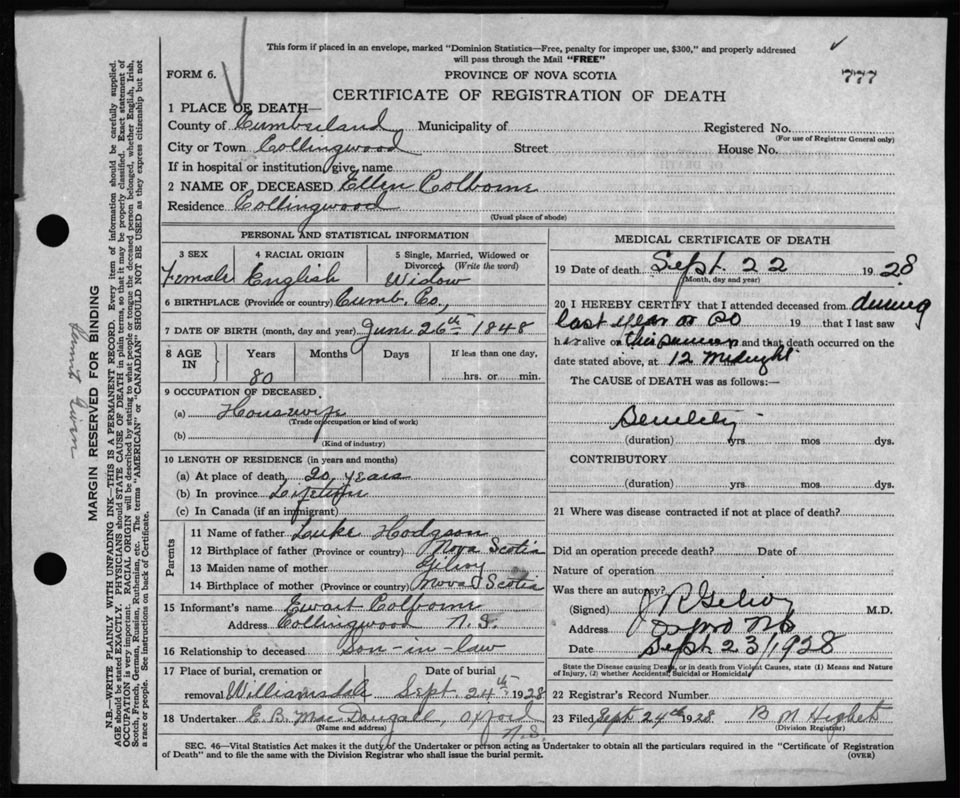 This form if placed in an envelope, marked "Dominion Statistics—Free, penalty for improper use, $300," and properly addressed
will pass through the Mail "FREE"
FORM 6.
PROVINCE OF NOVA SCOTIA
777
CERTIFICATE OF REGISTRATION OF DEATH
1 PLACE OF DEATH—
County of Cumberland Municipality of Registered No.
(For use of Registrar General only)
City or Town Collingwood Street House No.
If in hospital or institution, give name
2 NAME OF DECEASED Ellen Colborne
Residence Collingwood
(Usual place of abode)
PERSONAL AND STATISTICAL INFORMATION
3 SEX 4 RACIAL ORIGIN 5 Single, Married, Widowed or
Divorced (Write the word)
Female English Widow
6 BIRTHPLACE (Province or country) Cumb. Co.,
7 DATE OF BIRTH (month, day and year) June 26th 1848
8 AGE IN Years Months Days If less than one day,
80 hrs. or min.
9 OCCUPATION OF DECEASED
(a) Housewife
(Trade or occupation or kind of work)
(b)
(Kind of industry)
10 LENGTH OF RESIDENCE (in years and months)
(a) At place of death 20 years
(b) In province Lifetime
(c) In Canada (if an immigrant)
Parents
11 Name of father Luke Hodgson
12 Birthplace of father (Province or country) Nova Scotia
13 Maiden name of mother Gilroy
14 Birthplace of mother (Province or country) Nova Scotia
15 Informant's name Ewart Colborne
Address Collingwood N.S.
16 Relationship to deceased Son-in-law
17 Place of burial, cremation or Date of burial
removal Williamsdale Sept. 24th 1928
18 Undertaker E. B. MacDougall, Oxford N.S.
(Name and address)
MEDICAL CERTIFICATE OF DEATH
19 Date of death Sept. 22 1928
(Month, day and year)
20 I HEREBY CERTIFY that I attended deceased from during
last year or so 19 that I last saw
her alive on this summer and that death occurred on the
date stated above, at 12 midnight
The CAUSE OF DEATH was as follows:—
Senility
(duration) yrs. mos. dys.
CONTRIBUTORY
(duration) yrs. mos. dys.
21 Where was disease contracted if not at place of death?
Did an operation precede death? Date of
Nature of operation
Was there an autopsy?
(Signed) J R Gilroy M.D.
Address Oxford NS
Date Sept. 23/1928
State the Disease causing Death, or in death from Violent Causes, state (1) Means and Nature
of Injury, (2) whether Accidental, Suicidal or Homicidal
22 Registrar's Record Number
23 Filed Sept 24th 1928 B M
(Division Registrar)
SEC. 46—Vital Statistics Act makes it the duty of the Undertaker or person acting as Undertaker to obtain all the particulars required in the "Certificate of Registration
of Death" and to file the same with the Division Registrar who shall issue the burial permit. (OVER)
MARGIN RESERVED FOR BINDING
N.B.—WRITE PLAINLY WITH UNFADING INK—THIS IS A PERMANENT RECORD. Every item of information should be carefully supplied.
AGE should be stated EXACTLY. PHYSICIANS should STATE CAUSE OF DEATH in plain terms, so that it may be properly classified. Exact statement of
OCCUPATION is very important. RACIAL ORIGIN will be described by stating to what people or tongue the deceased person belonged, whether English, Irish,
Scotch, French, German, Russian, Ruthenian, etc. The terms "AMERICAN" or "CANADIAN" SHOULD NOT BE USED as they express citizenship but not
a race or people. See instructions on back of Certificate.